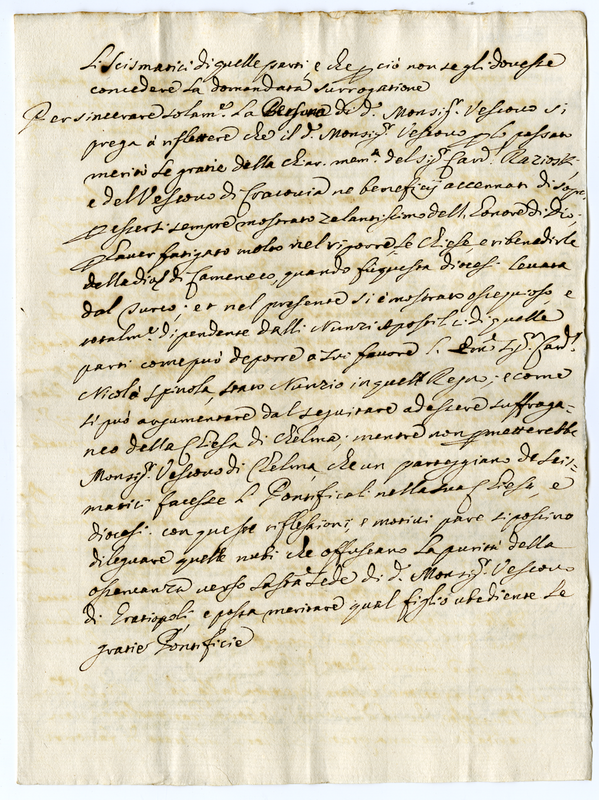 li Scismatici di quelle parti, e che per ciò non se gli dovesse
concedere la domandata surrogatione
Per sincerare solam.e la Persona di d.o Monsig.r Vescovo si
prega à riflettere che il d.o Monsig.r Vescovo per il passato
meritò le gratie della chiar. mem.a del sig.r Card.l Razioski
e del Vescovo di Cracovia ne beneficij accennati di sopra,
per essersi sempre mostrato zelantissimo dell'honore di Dio;
per haver fatigato molto nel riporre le Chiese, e ribenedirle
della dioc.i di Cameneco, quando fù questa diocesi levata
dal Turco; et nel presente si è mostrato ossequioso, e
totalm.e dipendente dalli Nunzi Apostolici di quelle
parti come può deporre a suo favore l' Em.o sig.r Card.l
Nicola Spinola, stato Nunzio in quell Regno; e come
si può argumentare dal seguitare ad essere suffraga-
neo della Chiesa di Chelma; mentre non permetterebbe
Monsig.r Vescovo di Chelma, che un parteggiano de Scis-
matici facesse li Pontificali nella sua Chiesa, e
diocesi. con queste riflessioni, e motivi pare si possino
dileguare quelle nubi che offuscano la purità della
osservanza verso la Sta Sede di d.o Monsig.r Vescovo
di, e possa meritare qual figlio ubediente le
gratie Pontificie